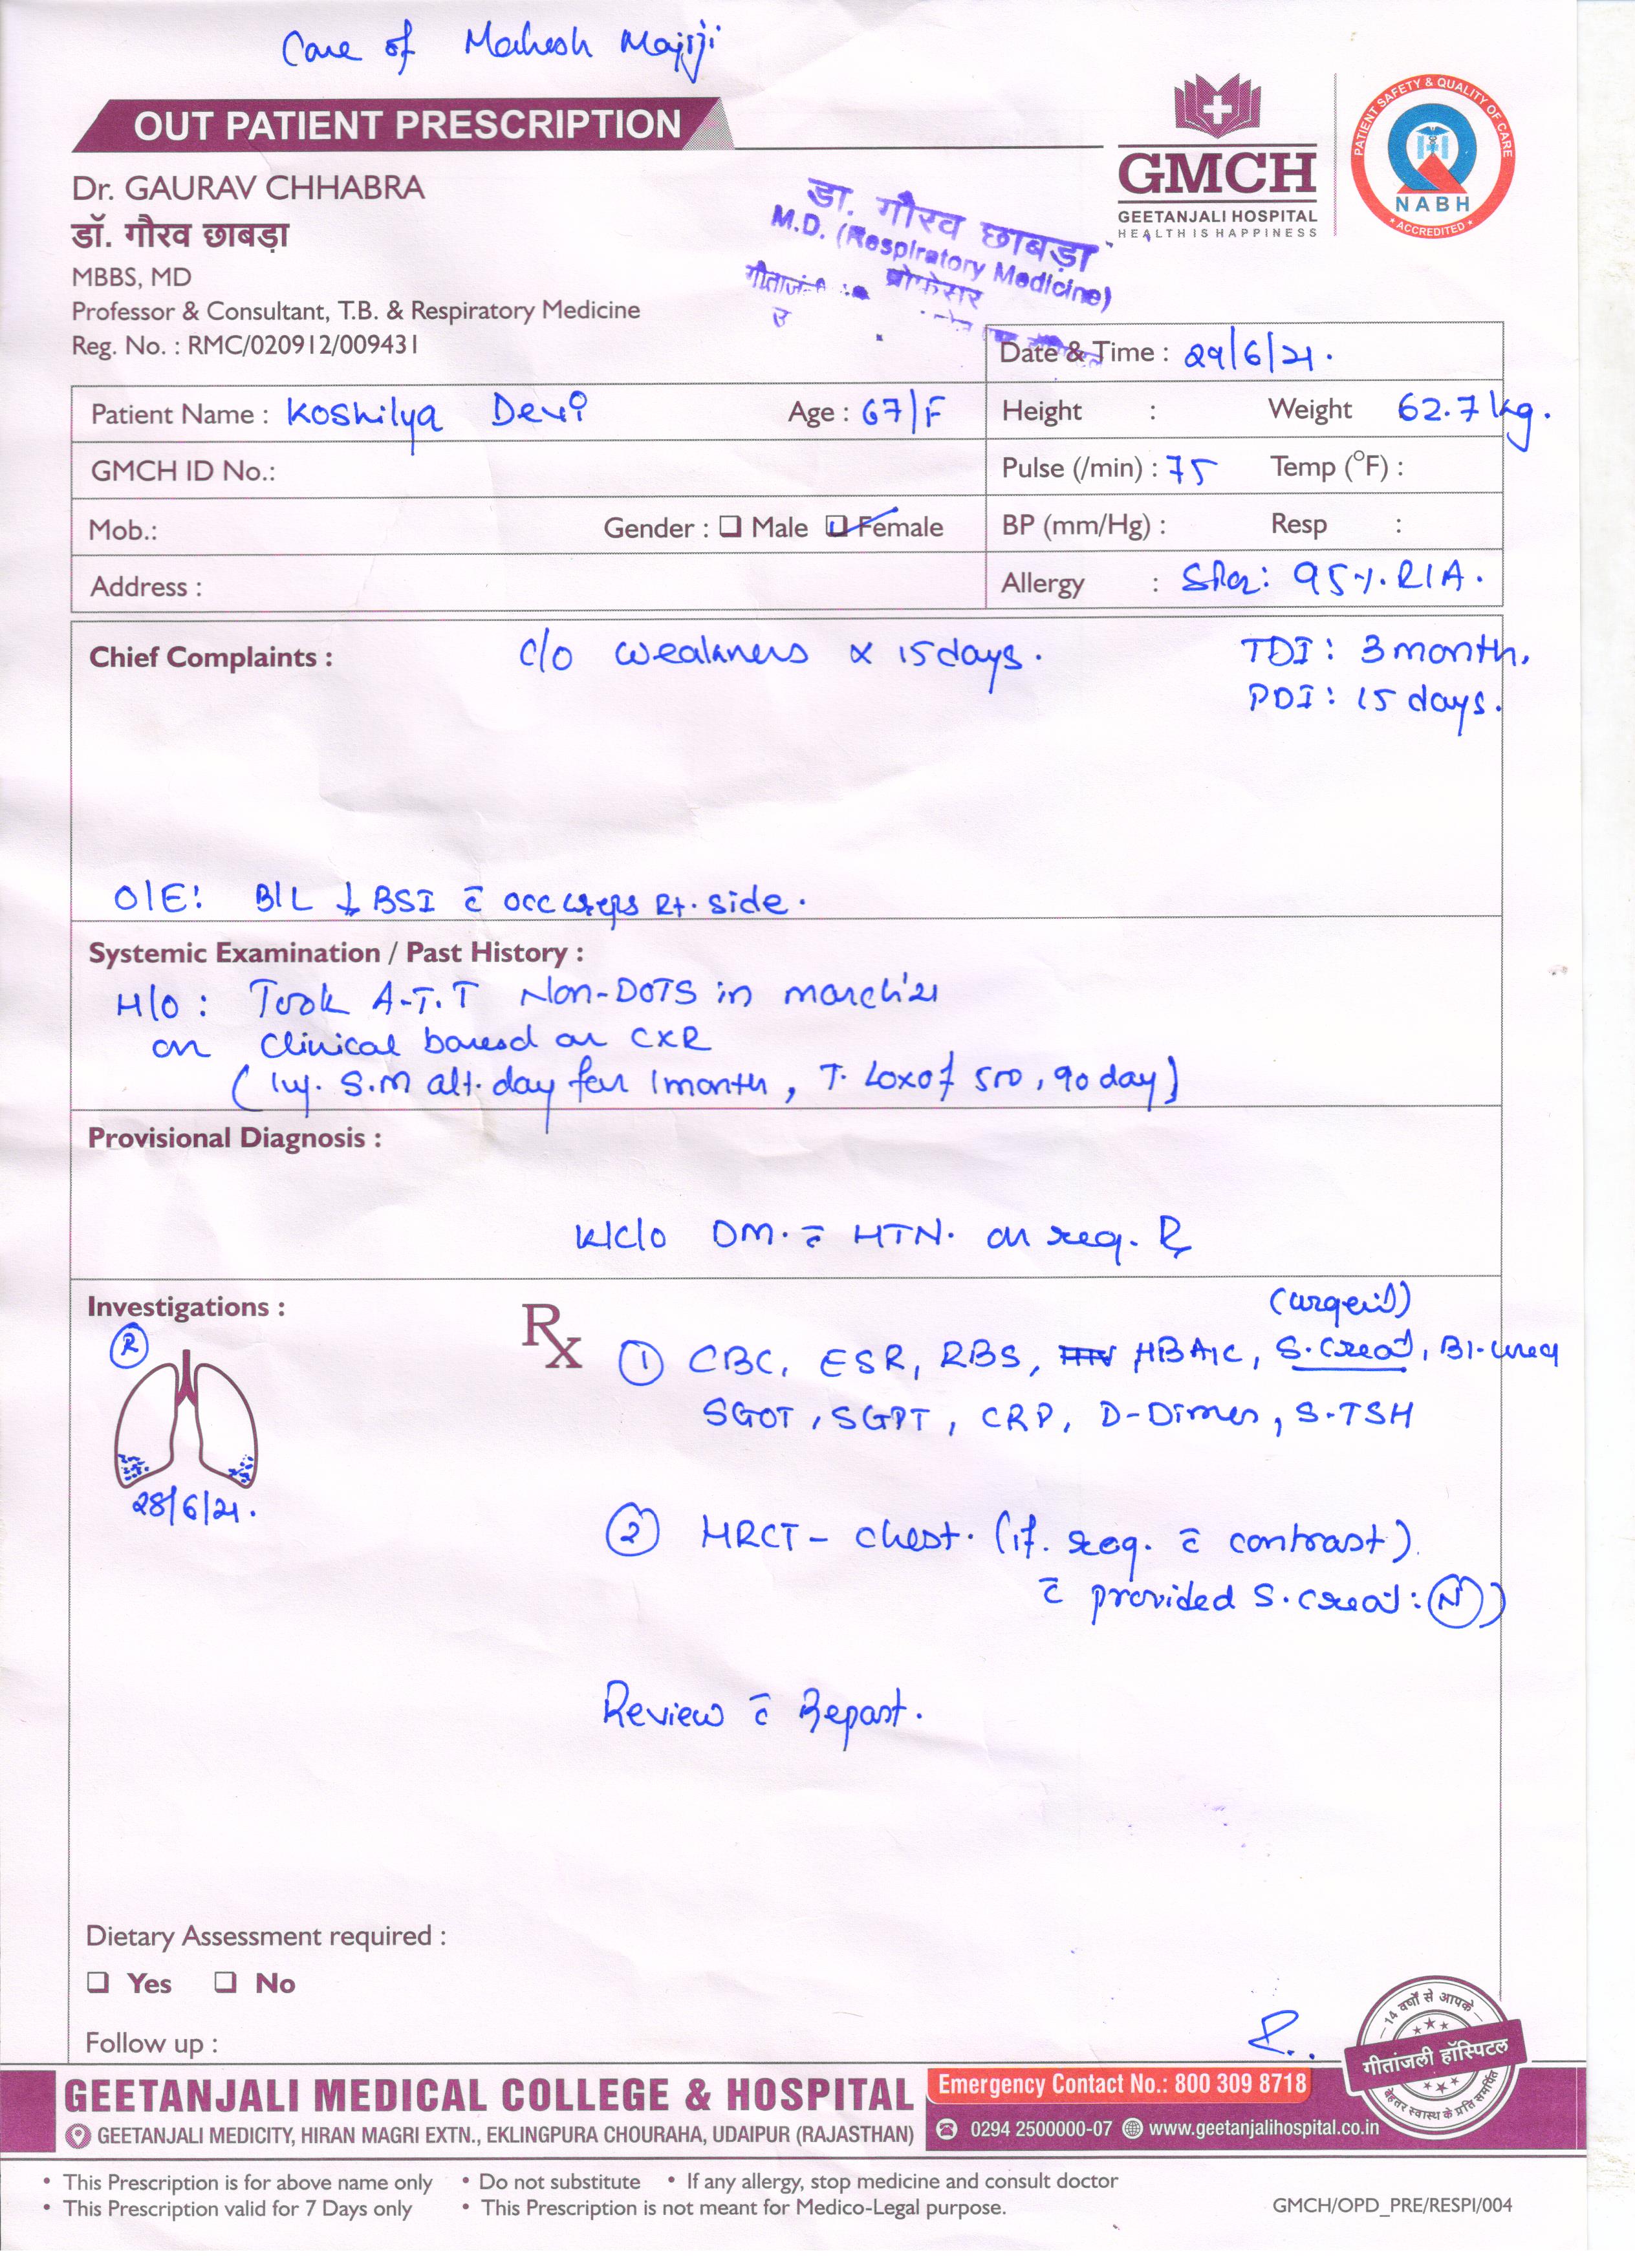 Care of Mahesh Majiji
OUT PATIENT PRESCRIPTION
GMCH
GEETANJALI HOSPITAL
HEALTH IS HAPPINESS
PATIENT SAFETY & QUALITY OF CARE
NABH
* ACCREDITED *
Dr. GAURAV CHHABRA
डॉ. गौरव छाबड़ा
MBBS, MD
Professor & Consultant, T.B. & Respiratory Medicine
Reg. No. : RMC/020912/009431
डा. गौरव छाबड़ा
M.D. (Respiratory Medicine)
प्रोफेसर
Date & Time : 29/6/21.
Patient Name : Koshilya Devi Age : 67/F Height : Weight 62.7 kg.
GMCH ID No.: Pulse (/min) : 75 Temp (°F) :
Mob.: Gender : Male Female BP (mm/Hg) : Resp :
Address : Allergy : SPO2: 95%. RIA.
Chief Complaints : C/o weakness x 15 days. TDI : 3 month.
PDI : 15 days.
O/E: B/L ↓ BSI c̄ occ creps Rt. side.
Systemic Examination / Past History :
H/o : Took A.T.T Non-DOTS in march'21
on Clinical based on CXR
(Inj. S.M alt. day for 1 month, T. Loxof 500, 90 day)
Provisional Diagnosis :
K/C/O DM. c̄ HTN. on reg. Rx
Investigations :
R
28/6/21.
Rx
(urgent)
① CBC, ESR, RBS, HBA1C, S.Creat, Bl-urea
SGOT, SGPT, CRP, D-Dimer, S.TSH
② HRCT - chest. (if. req. c̄ contrast).
c̄ provided S.creat: N)
Review c̄ Report.
Dietary Assessment required :
Yes No
Follow up :
14 वर्षों से आपके
गीतांजली हॉस्पिटल
बेहतर स्वास्थ के प्रति समर्पित
GEETANJALI MEDICAL COLLEGE & HOSPITAL
Emergency Contact No.: 800 309 8718
GEETANJALI MEDICITY, HIRAN MAGRI EXTN., EKLINGPURA CHOURAHA, UDAIPUR (RAJASTHAN)
0294 2500000-07 www.geetanjalihospital.co.in
• This Prescription is for above name only • Do not substitute • If any allergy, stop medicine and consult doctor
• This Prescription valid for 7 Days only • This Prescription is not meant for Medico-Legal purpose.
GMCH/OPD_PRE/RESPI/004